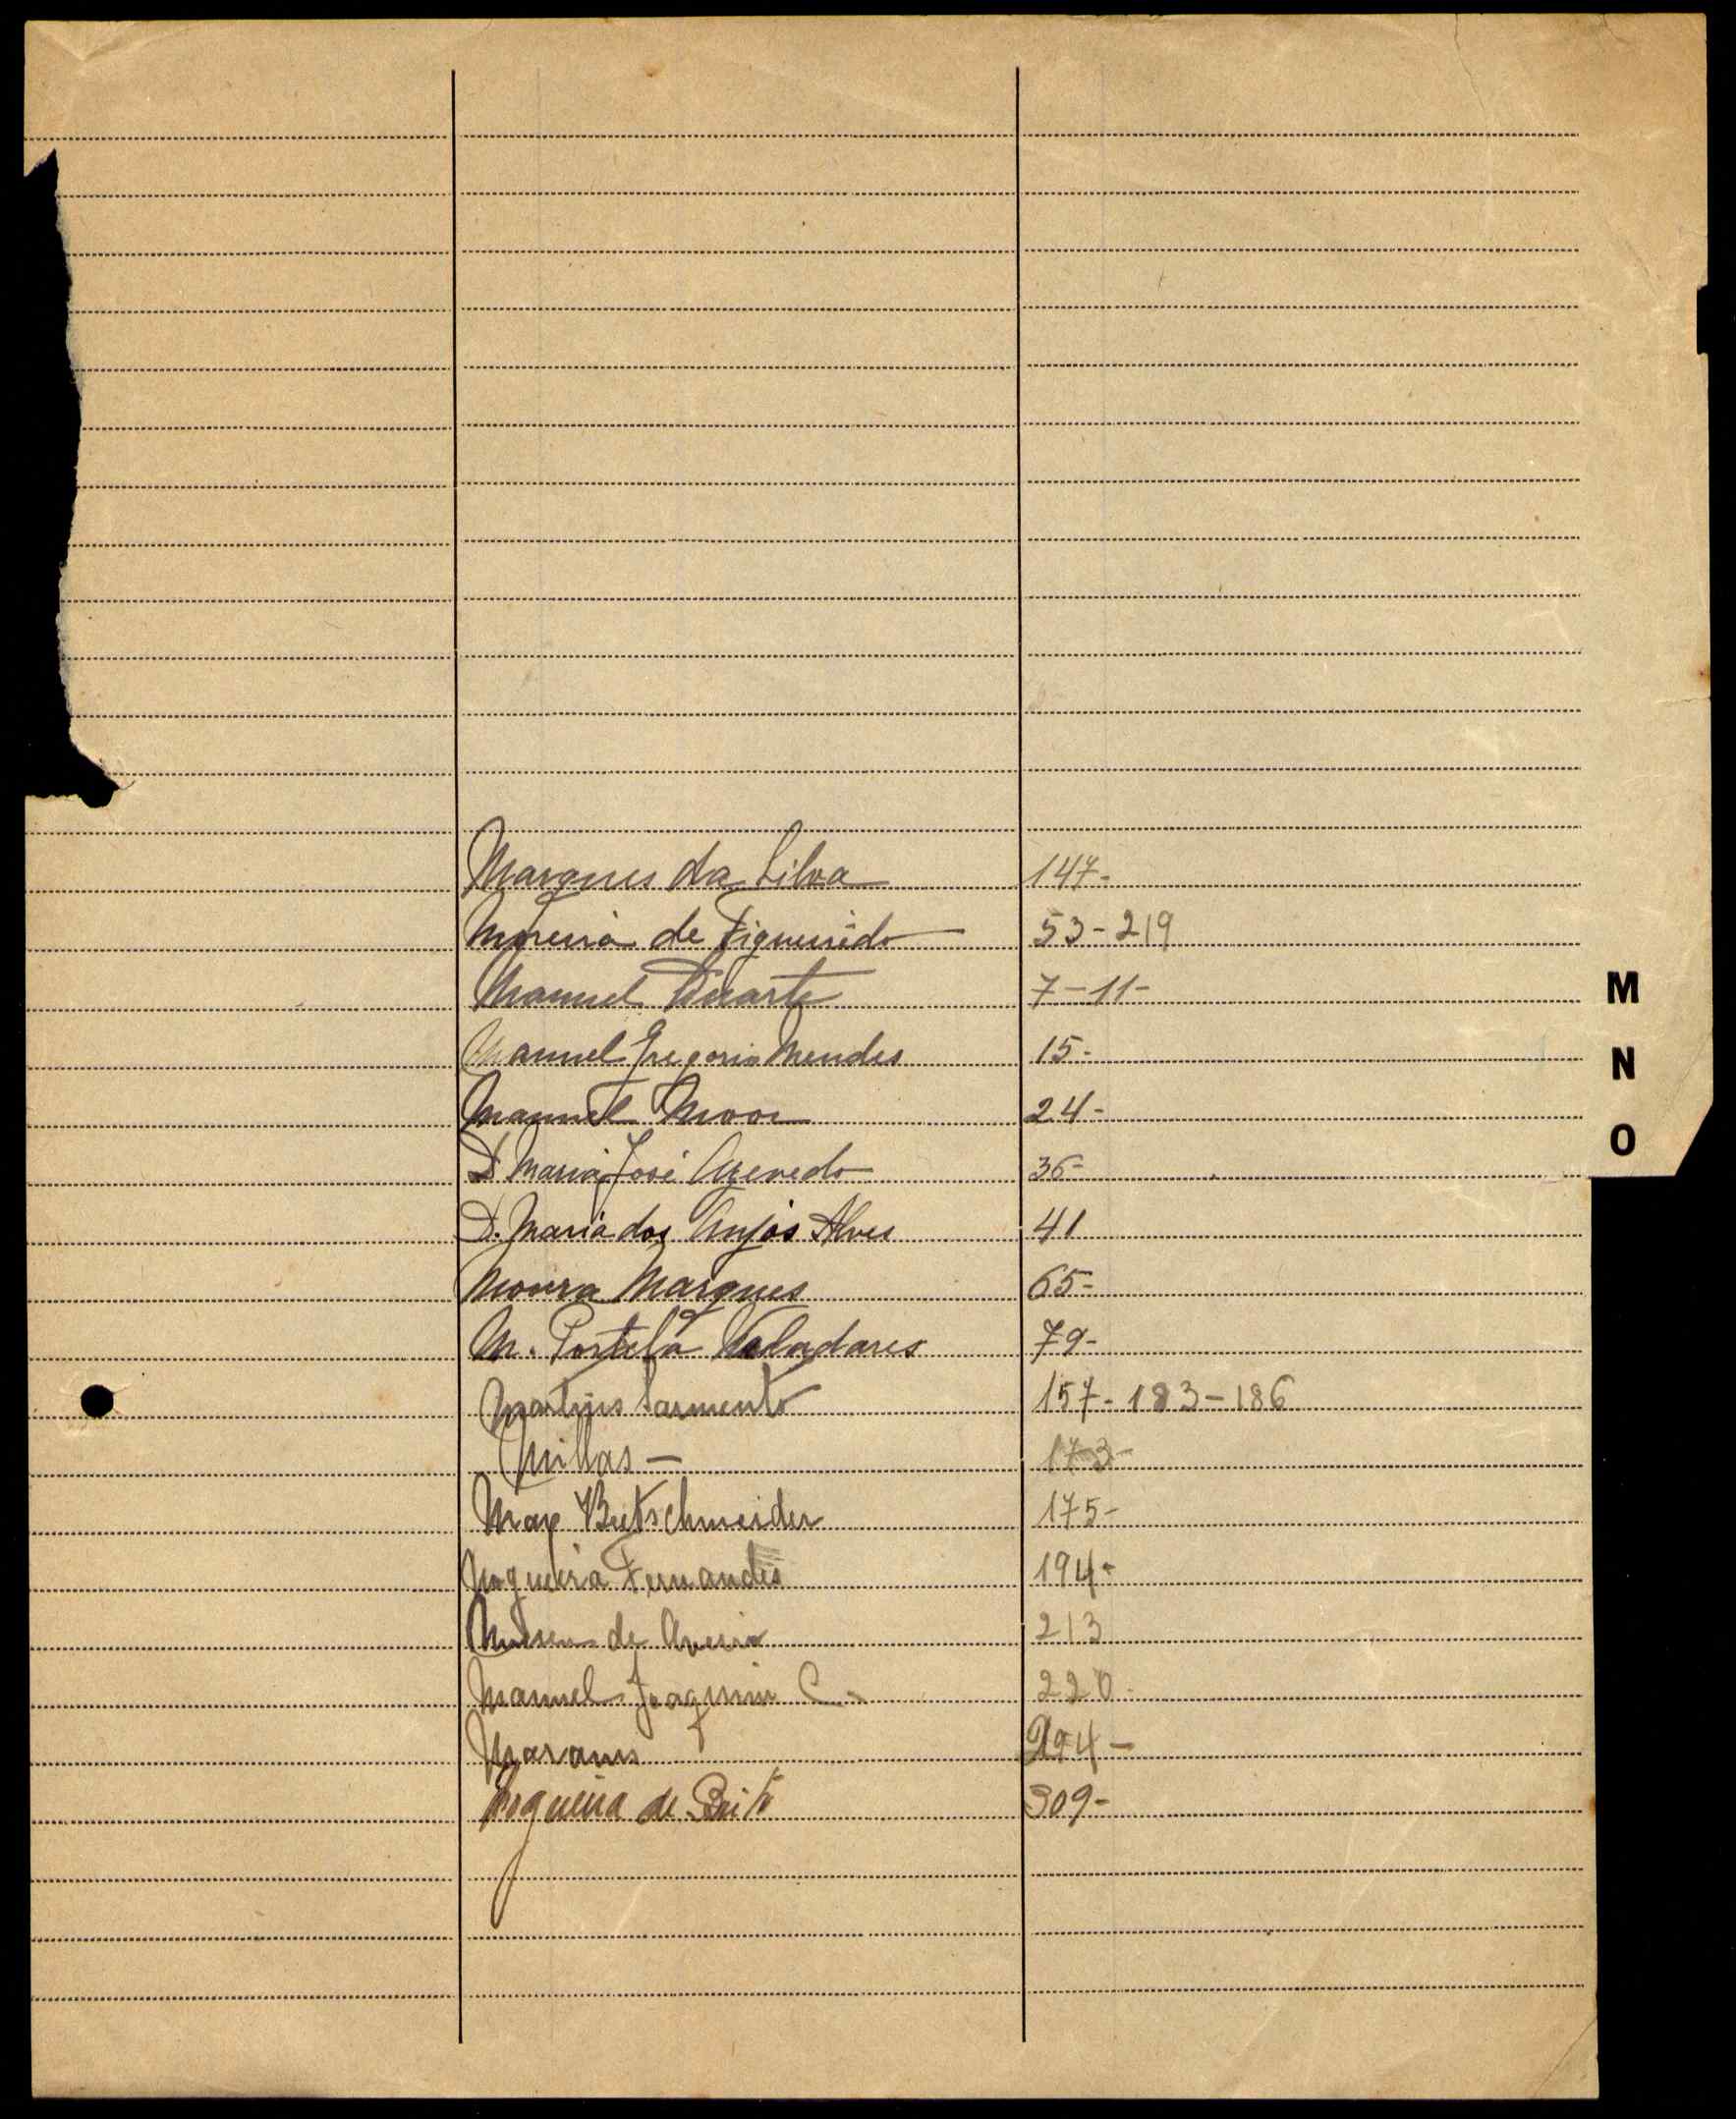 Marques da Silva 147-
Moreira de Figueirêdo 53-219
Manuel Duarte 7-11-
Manuel Gregorio Mendes 15-
Manuel Moor 24-
D. Maria José Azevedo 36-
D. Maria dos Anjos Alves 41
Moura Marques 65-
M. Portela Valadares 79-
Martins Sarmento 157-183-186
Millas — 173-
Max Bretschneider 175-
Nogueira Fernandes 194-
Museu de Aveiro 213
Manuel Joaquim C. 220-
294-
Nogueira de Brito 309-
M
N
O